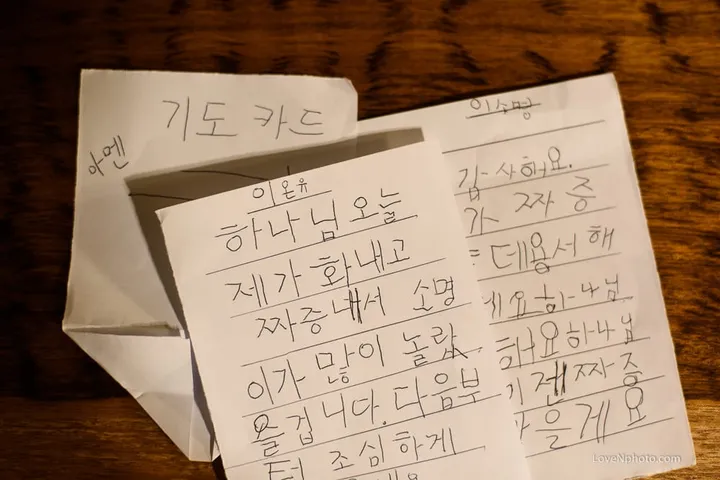 기도 카드
아멘
이온유
하나님 오늘
제가 화내고
짜증내서 소명
이가 많이 놀랐
을겁니다. 다음부
터 조심하게
이소명
감사해요.
짜증
데용서 해
세요 하나님
해요 하나님
짜증
을게요
LoveNphoto.com